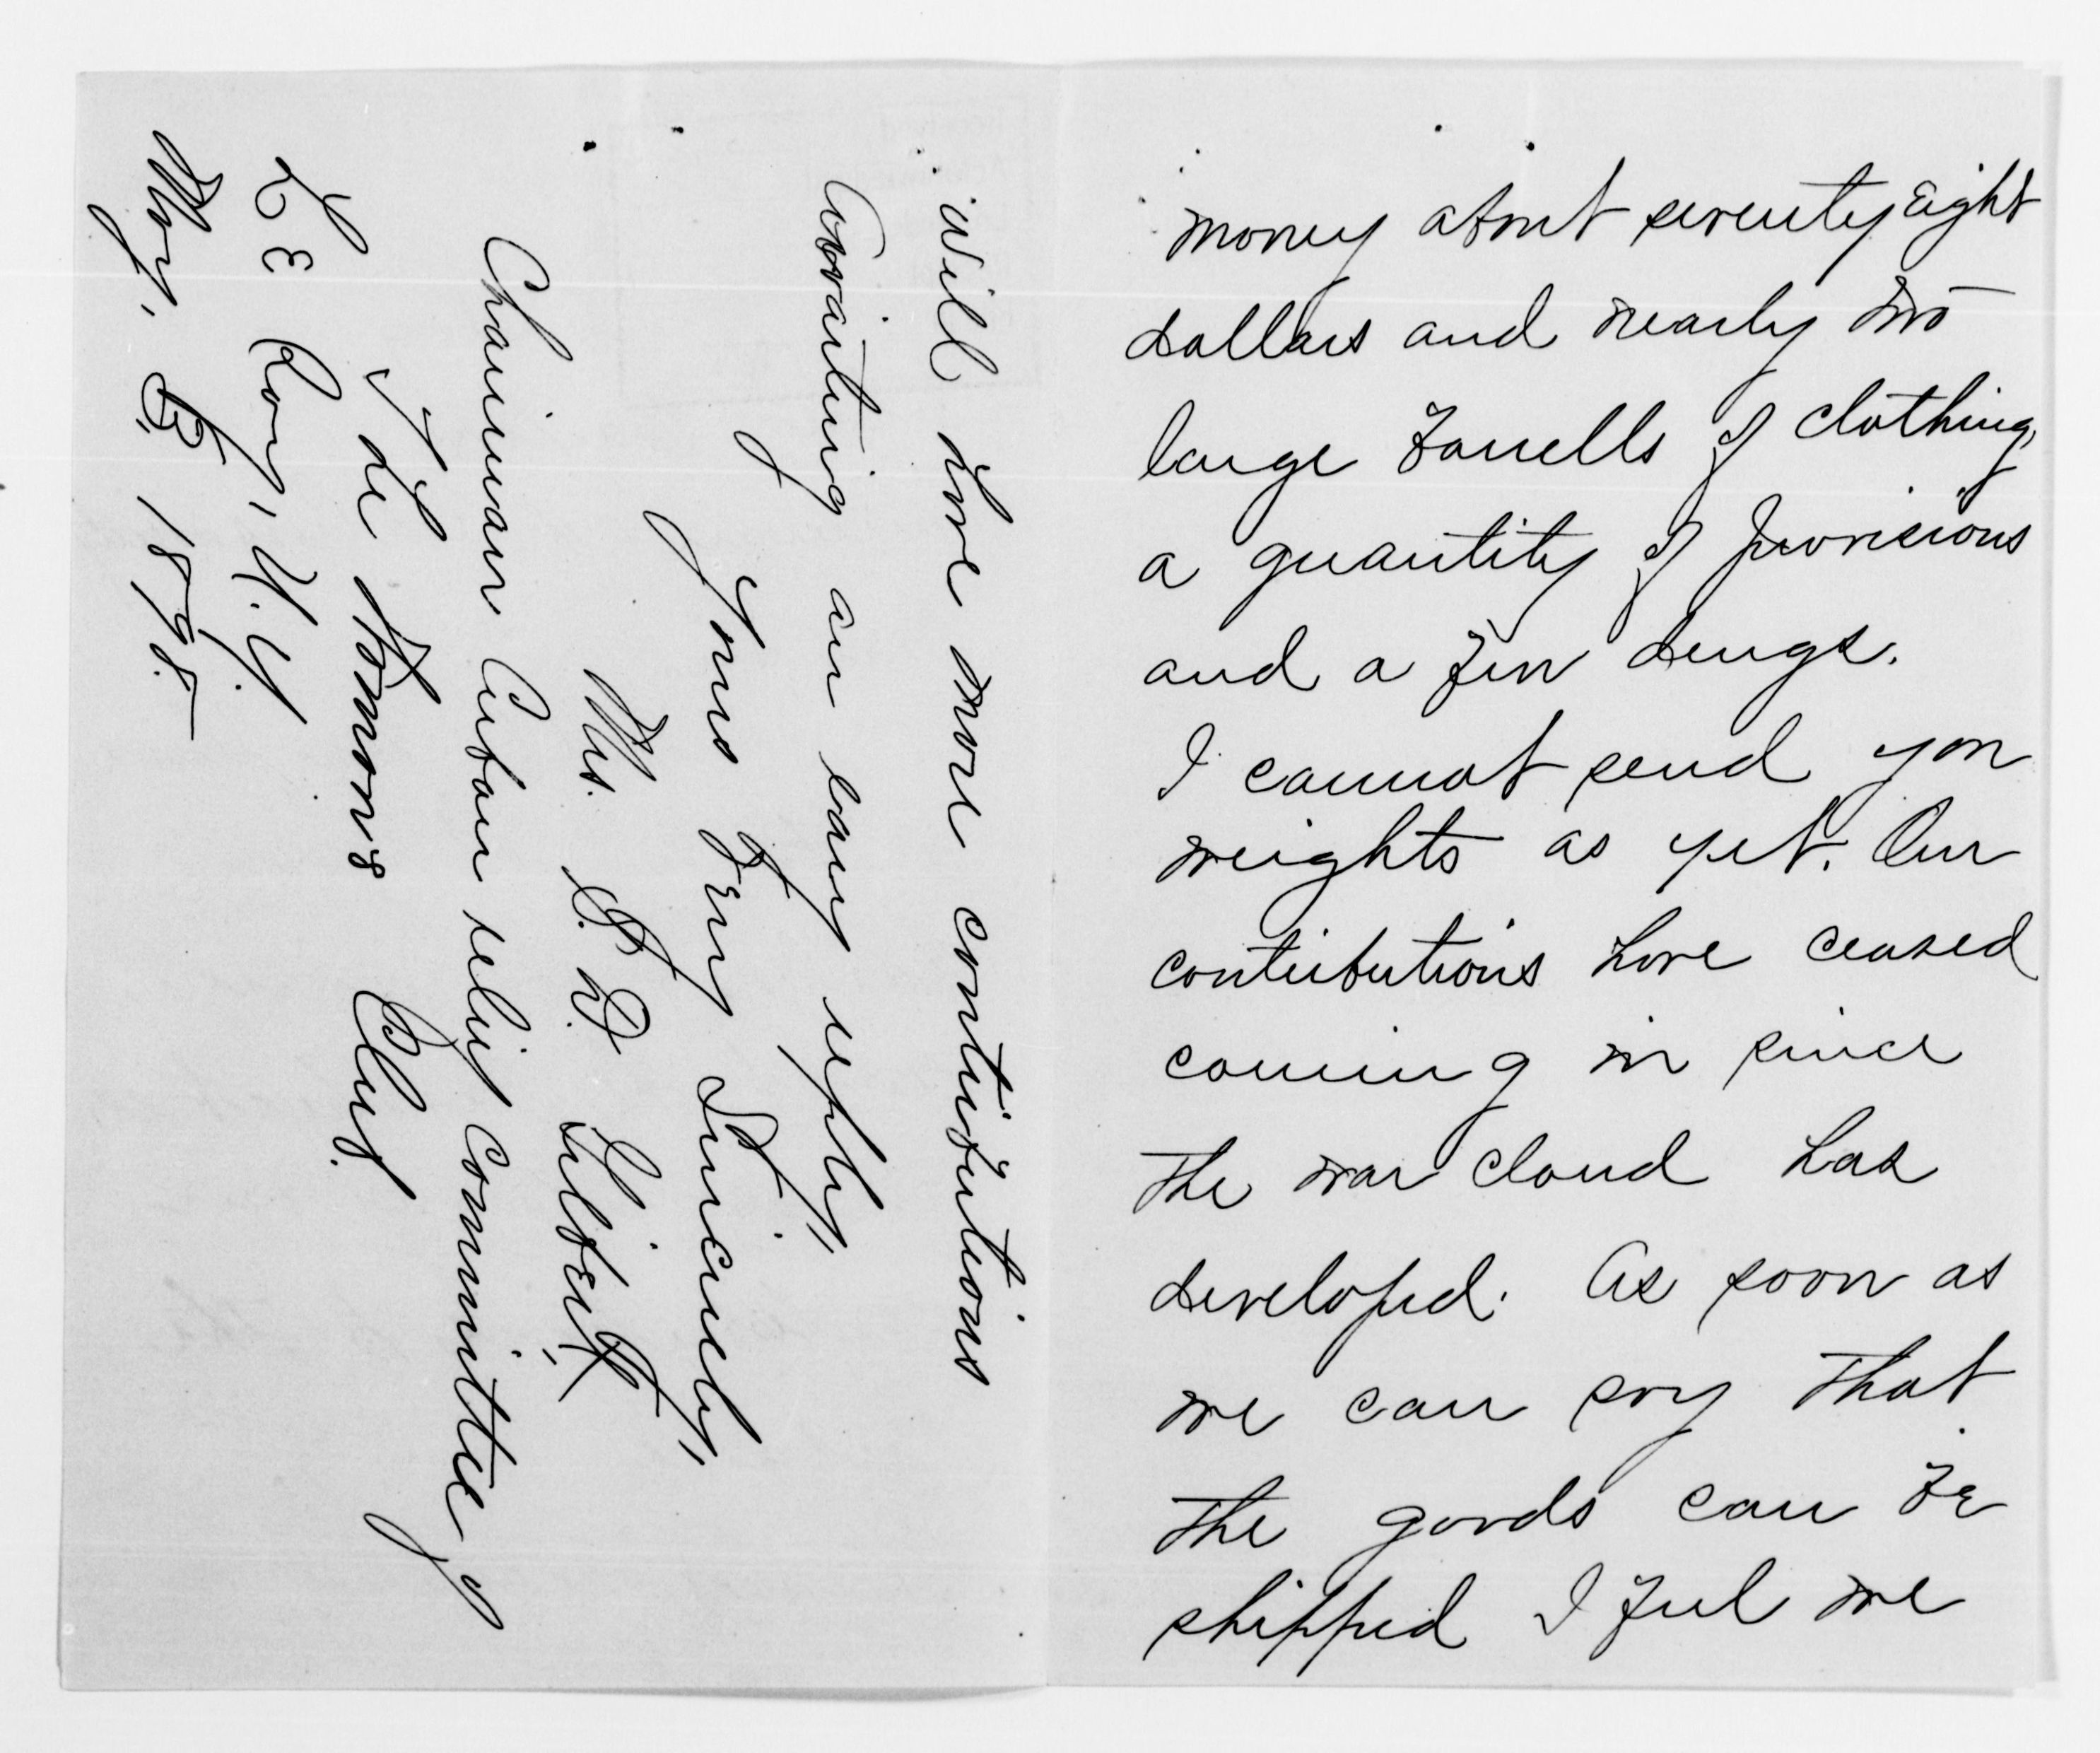 money about seventy eight
dollars and nearly two
large barrells of clothing,
a quantity of provisions
and a few drugs.
I cannot send you
weights as yet. Our
contributions have ceased
coming in since
the war cloud has
developed. As soon as
we can say that
the goods can be
shipped I feel we
will have more contributions
Awaiting an early reply,
Yours Very Sincerely,
Mrs. S. D. Gilbert,
Chairman Cuban relief committee of
the Womans Club.
LE Roy, N.Y.
May, 5, 1898.